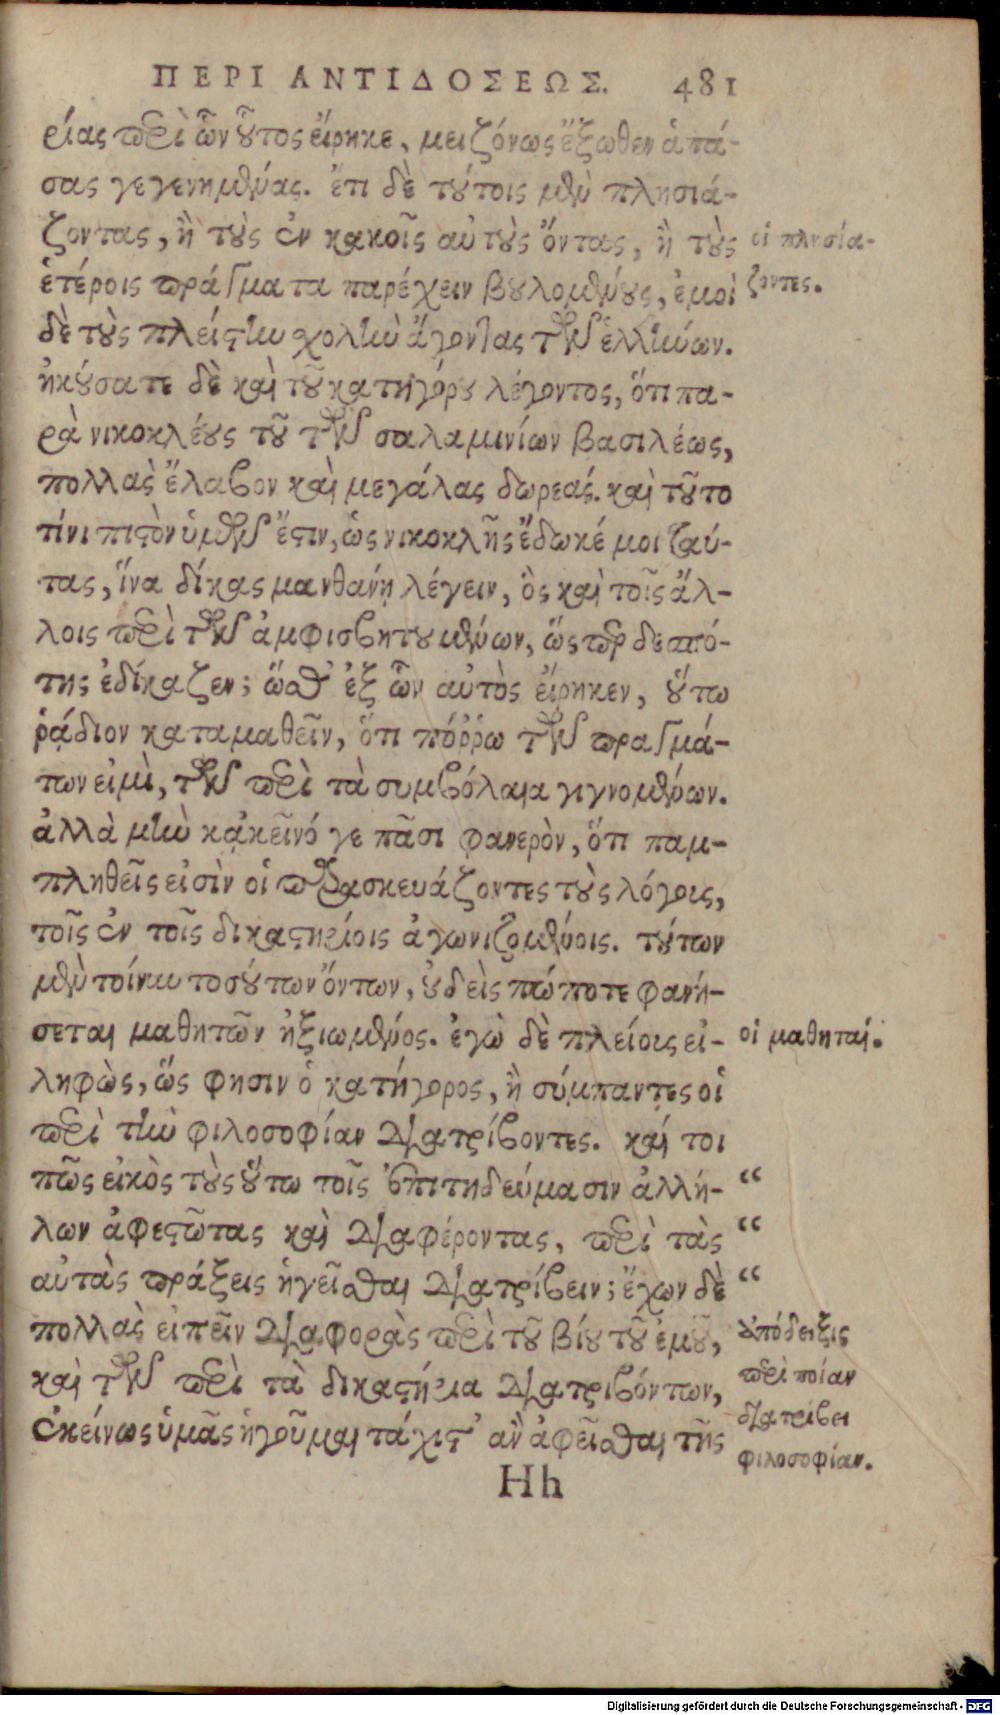 ΠΕΡΙ ΑΝΤΙΔΟΣΕΩΣ. 481
ρίας περὶ ὧν οὗτος εἴρηκε, μειζόνως ἔξωθεν ἁπά-
σας γεγενημένας. ἔτι δὲ τούτοις μὲν πλησιά-
ζοντας, ἢ τοὺς ἐν κακοῖς αὐτοὺς ὄντας, ἢ τοὺς
οἱ πλησιά-
ἑτέροις πράγματα παρέχειν βουλομένους, ἐμοὶ
ζοντες.
δὲ τοὺς πλείστην χολὴν ἄγοντας τῶν ἑλλήνων.
ἠκούσατε δὲ καὶ τοῦ κατηγόρου λέγοντος, ὅτι πα-
ρὰ νικοκλέους τοῦ τῶν σαλαμινίων βασιλέως,
πολλὰς ἔλαβον καὶ μεγάλας δωρεάς. καὶ τοῦτο
τίνι πιστὸν ὑμῶν ἔστιν, ὡς νικοκλῆς ἔδωκέ μοι ταύ-
τας, ἵνα δίκας μανθάνῃ λέγειν, ὃς καὶ τοῖς ἄλ-
λοις περὶ τῶν ἀμφισβητουμένων, ὥσπερ δεσπό-
της ἐδίκαζεν; ὥσθ' ἐξ ὧν αὐτὸς εἴρηκεν, οὕτω
ῥᾴδιον καταμαθεῖν, ὅτι πόῤῥω τῶν πραγμά-
των εἰμὶ, τῶν περὶ τὰ συμβόλαια γιγνομένων.
ἀλλὰ μὴν κἀκεῖνό γε πᾶσι φανερὸν, ὅτι παμ-
πληθεῖς εἰσὶν οἱ παρασκευάζοντες τοὺς λόγους,
τοῖς ἐν τοῖς δικαστηρίοις ἀγωνιζομένοις. τούτων
μὲν τοίνυν τοσούτων ὄντων, οὐδεὶς πώποτε φανή-
σεται μαθητῶν ἠξιωμένος. ἐγὼ δὲ πλείους εἰ-
οἱ μαθηταί.
ληφὼς, ὥς φησιν ὁ κατήγορος, ἢ σύμπαντες οἱ
περὶ τὴν φιλοσοφίαν διατρίβοντες. καί τοι
πῶς εἰκὸς τοὺς οὕτω τοῖς ἐπιτηδεύμασιν ἀλλή- “
λων ἀφεστῶτας καὶ διαφέροντας, περὶ τὰς “
αὐτὰς πράξεις ἡγεῖσθαι διατρίβειν; ἔχων δὲ “
πολλὰς εἰπεῖν διαφορὰς περὶ τοῦ βίου τοῦ ἐμοῦ,
ἀπόδειξις
καὶ τῶν περὶ τὰ δικαστήρια διατριβόντων,
περὶ ποίαν
διατρίβει
ἐκείνως ὑμᾶς ἡγοῦμαι τάχιστ' ἂν ἀφεῖσθαι τῆς
φιλοσοφίαν.
Hh
Digitalisierung gefördert durch die Deutsche Forschungsgemeinschaft - DFG